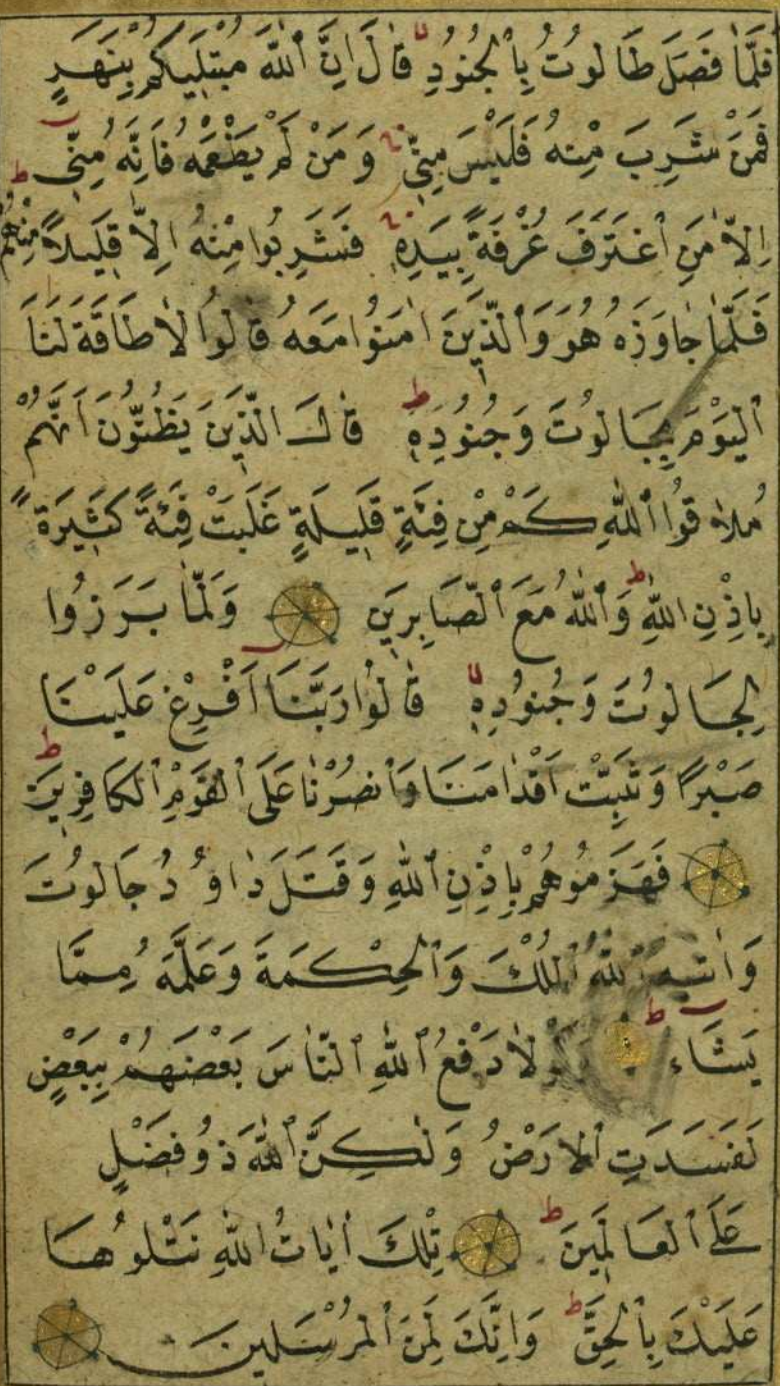 فَلَمَّا فَصَلَ طَالُوتُ بِٱلْجُنُودِ قَالَ اِنَّ ٱللّٰهَ مُبْتَلِيكُمْ بِنَهَرٍ
فَمَنْ شَرِبَ مِنْهُ فَلَيْسَ مِنِّى وَمَنْ لَمْ يَطْعَمْهُ فَاِنَّهُ مِنِّى ط
اِلَّا مَنِ ٱغْتَرَفَ غُرْفَةً بِيَدِهِ فَشَرِبُوا مِنْهُ اِلَّا قَلِيلًا مِنْهُمْ
فَلَمَّا جَاوَزَهُ هُوَ وَٱلَّذِينَ اٰمَنُوا مَعَهُ قَالُوا لَا طَاقَةَ لَنَا
ٱلْيَوْمَ بِجَالُوتَ وَجُنُودِهِ ط قَالَ الَّذِينَ يَظُنُّونَ اَنَّهُمْ
مُلَاقُوا ٱللّٰهِ كَمْ مِنْ فِئَةٍ قَلِيلَةٍ غَلَبَتْ فِئَةً كَثِيرَةً
بِاِذْنِ اللّٰهِ ط وَٱللّٰهُ مَعَ ٱلصَّابِرِينَ وَلَمَّا بَرَزُوا
لِجَالُوتَ وَجُنُودِهِ قَالُوا رَبَّنَا اَفْرِغْ عَلَيْنَا
صَبْرًا وَثَبِّتْ اَقْدَامَنَا وَٱنْصُرْنَا عَلَى ٱلْقَوْمِ ٱلْكَافِرِينَ ط
فَهَزَمُوهُمْ بِاِذْنِ ٱللّٰهِ وَقَتَلَ دَاوُدُ جَالُوتَ
وَاٰتٰيهُ ٱللّٰهُ ٱلْمُلْكَ وَٱلْحِكْمَةَ وَعَلَّمَهُ مِمَّا
يَشَاءُ ط وَلَوْلَا دَفْعُ ٱللّٰهِ ٱلنَّاسَ بَعْضَهُمْ بِبَعْضٍ
لَفَسَدَتِ ٱلْاَرْضُ وَلٰكِنَّ ٱللّٰهَ ذُو فَضْلٍ
عَلَى ٱلْعَالَمِينَ ط تِلْكَ اٰيَاتُ اللّٰهِ نَتْلُوهَا
عَلَيْكَ بِٱلْحَقِّ ط وَاِنَّكَ لَمِنَ ٱلْمُرْسَلِينَ